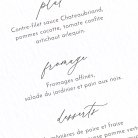 plat
Contre-filet sauce Chateaubriand,
pommes cocotte, tomate confite
artichaut arlequin
fromage
Fromages affinés,
salade du jardinier et pain aux noix
desserts
de poire et fraise